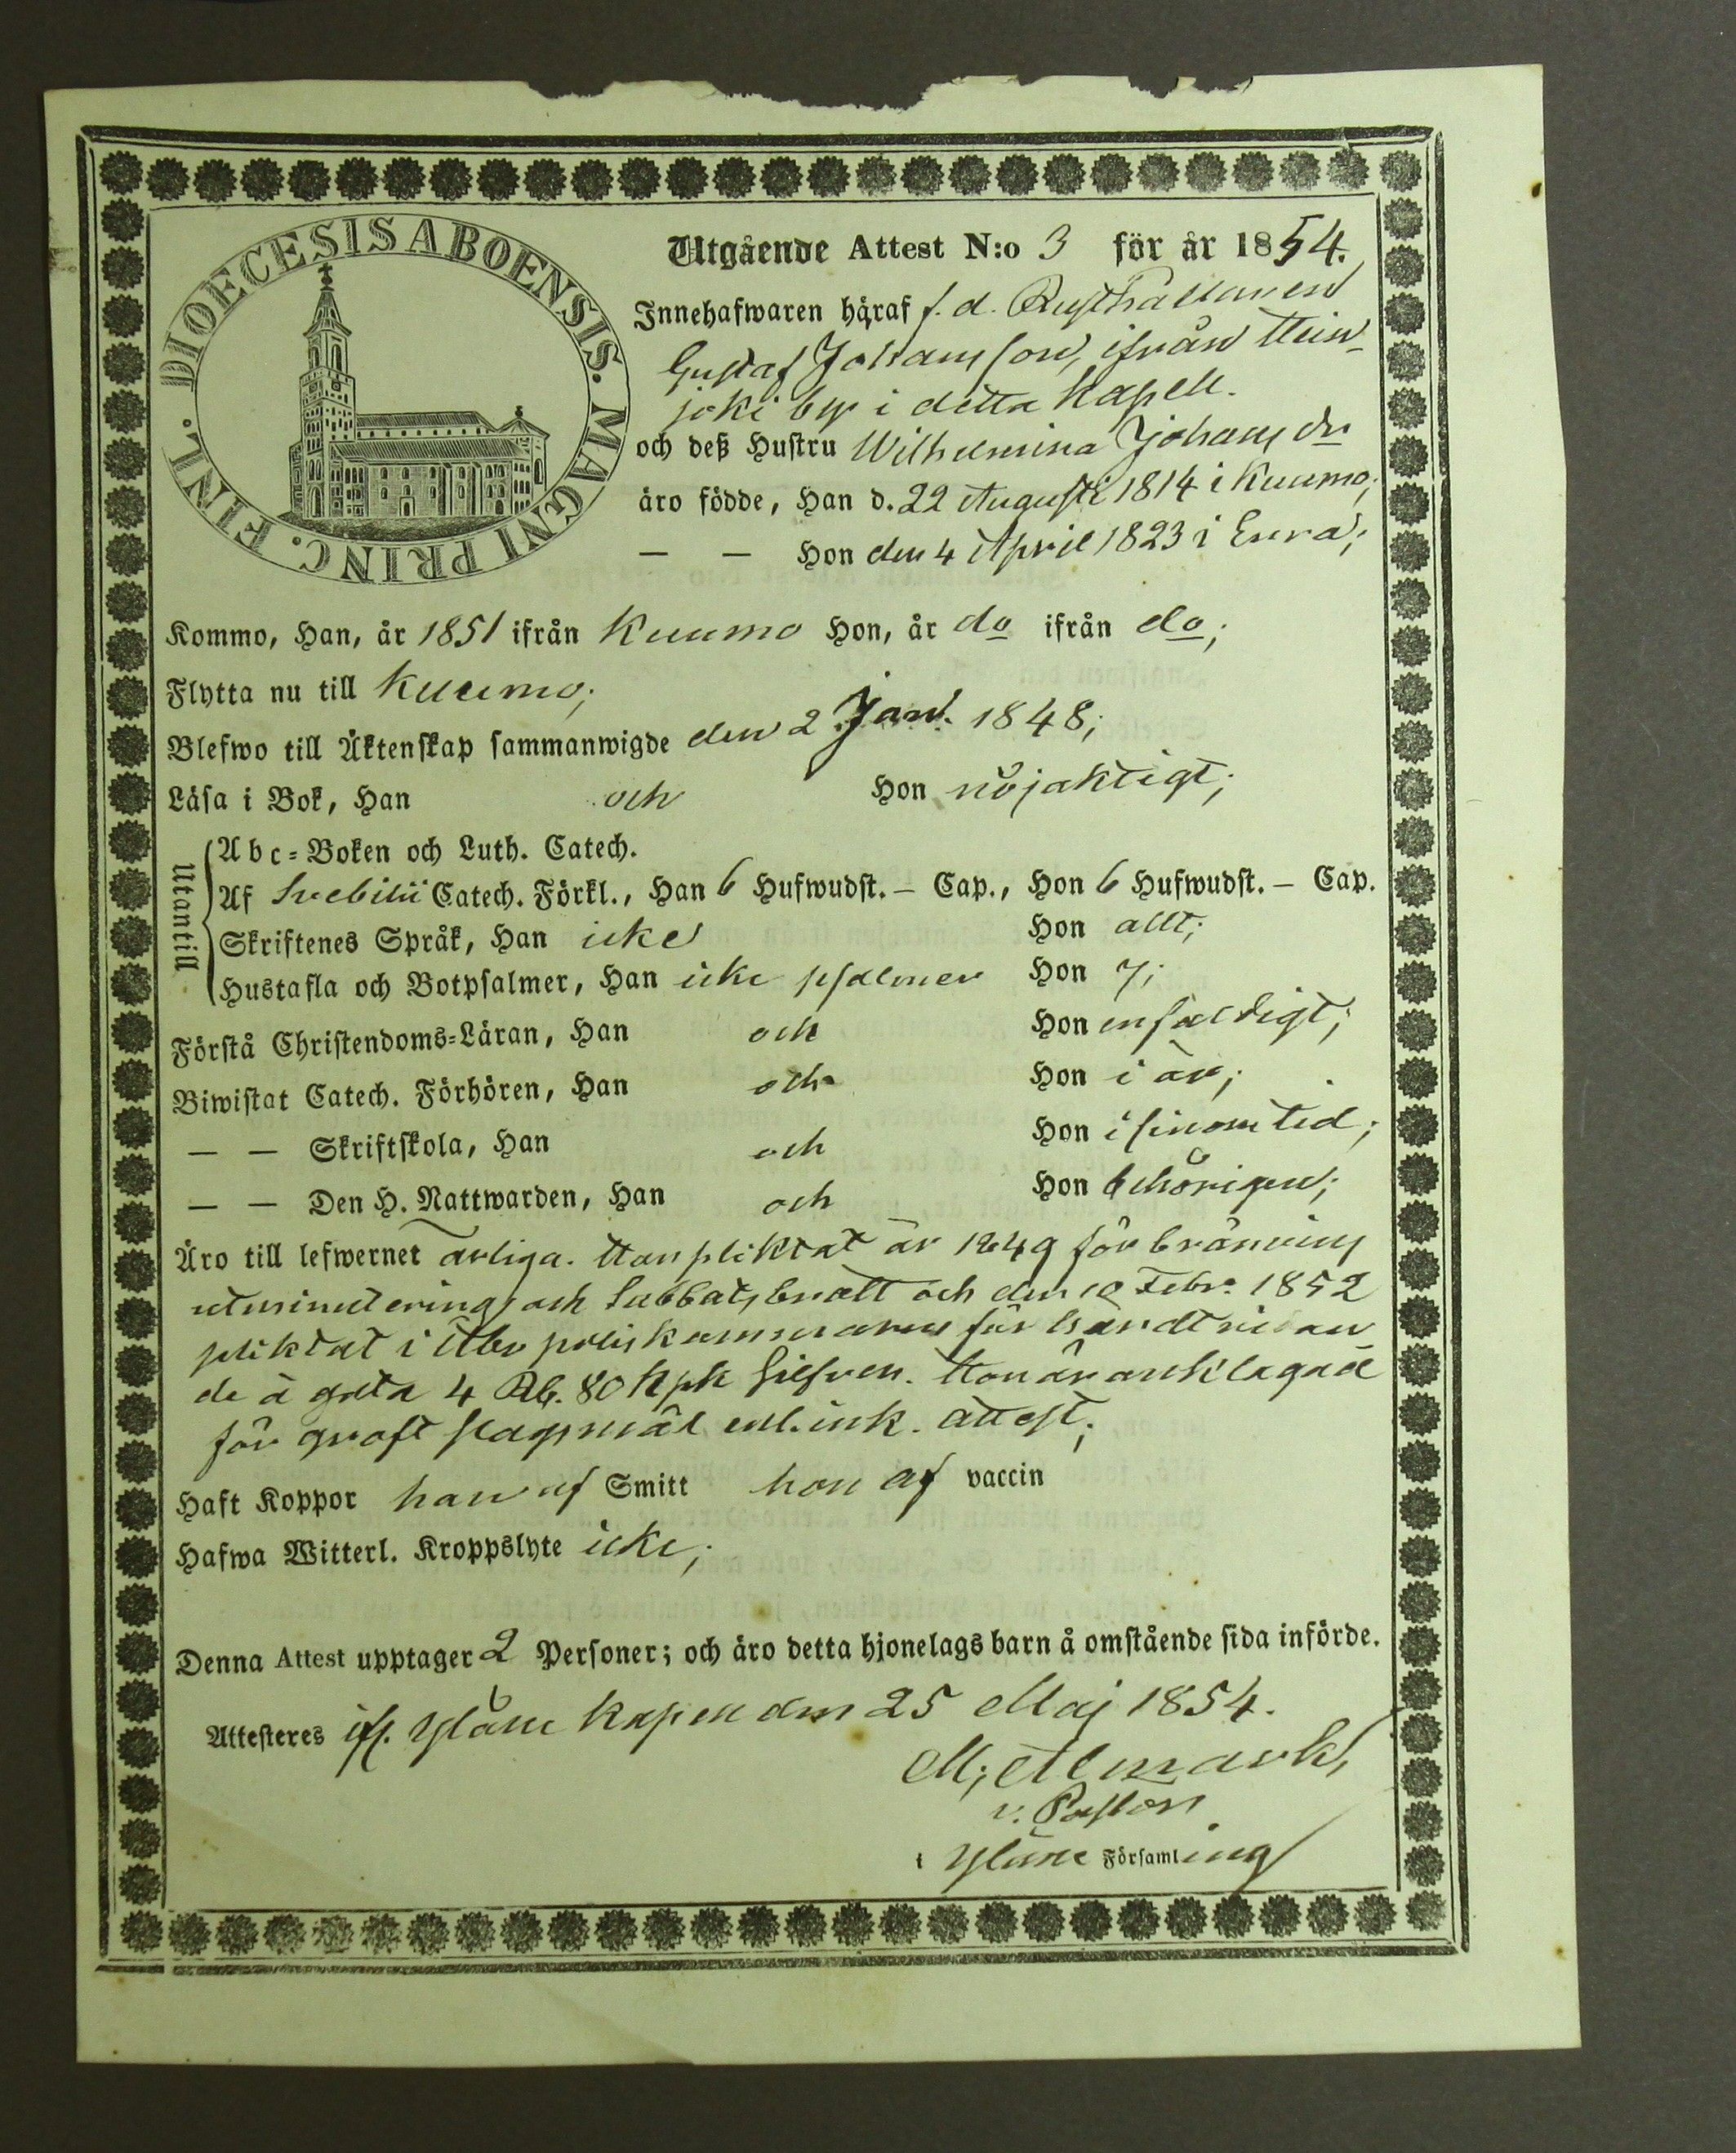 DIOECESIS ABOENSIS. MAGNI PRINC. FINL.
Utgående Attest N:o 3 för år 1854.
Innehafwaren häraf f. d. Rusthållaren
Gustaf Johansson, ifrån Hein-
joki by i detta Kapell.
och deß Hustru Wilhelmina Johansdr
äro födde, Han d. 22 Augusti 1814 i Kuumo;
— — Hon den 4 April 1823 i Eura;
Kommo, Han, år 1851 ifrån Kuumo Hon, år do ifrån do;
Flytta nu till Kuumo;
Blefwo till Äktenskap sammanwigde den 2 Jan. 1848;
Läsa i Bok, Han och Hon nöjaktigt;
Utantill
Abc-Boken och Luth. Catech.
Af Svebilii Catech. Förkl., Han 6 Hufwudst. — Cap., Hon 6 Hufwudst. — Cap.
Skriftenes Språk, Han icke Hon allt;
Hustafla och Botpsalmer, Han icke psalmer Hon 7;
Förstå Christendoms-Läran, Han och Hon enfaldigt;
Biwistat Catech. Förhören, Han och Hon i år;
— — Skriftskola, Han och Hon i sinom tid;
— — Den H. Nattwarden, Han och Hon behörigen;
Äro till lefwernet ärliga. Han pliktat år 1849 för bränvins
utminutering och Sabbatsbrott och den 10 Febr. 1852
pliktat i Åbo poliskammare för
de å gata 4 Rb. 80 Kpk Silfver. Hon är anklagad
för groft slagsmål enl. ink. attest;
Haft Koppor han af Smitt hon af vaccin
Hafwa Witterl. Kroppslyte icke;
Denna Attest upptager 2 Personer; och äro detta hjonelags barn å omstående sida införde.
Attesteres ifr. Yläne Kapell den 25 Maj 1854.
M; Almark,
v. Pastor
i Yläne Församling